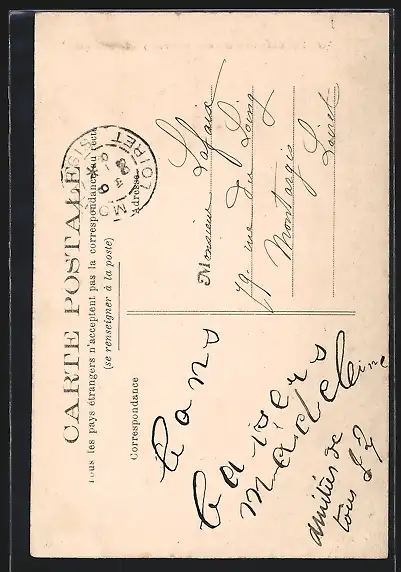 CARTE POSTALE
Tous les pays étrangers n'acceptent pas la correspondance au recto
(se renseigner à la poste)
Correspondance
Adresse
LOIRET
bons
baisers
Madeleine
amitiés de
tous
Monsieur Lafaix
79 rue du Loing
Montargis
Loiret